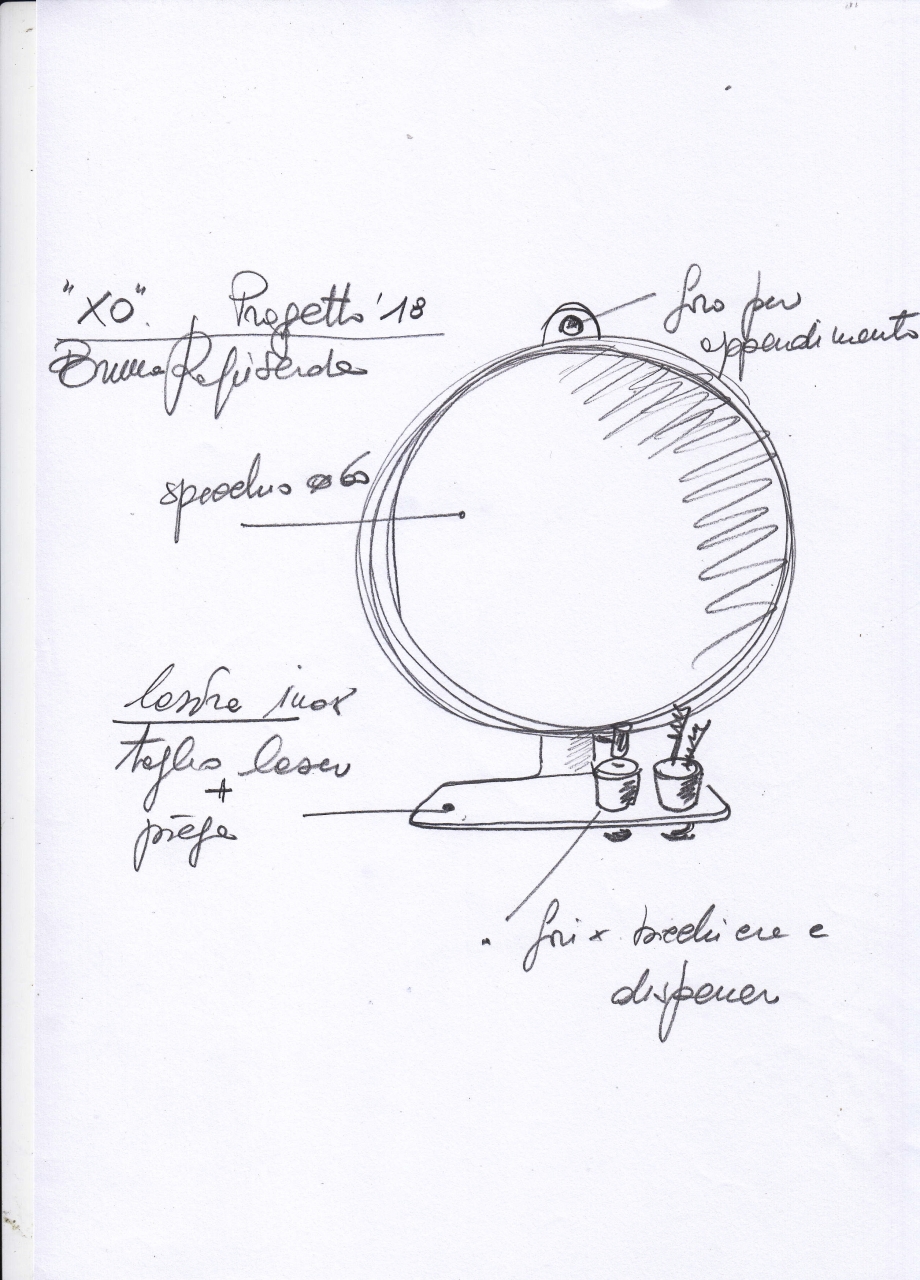 "XO". Progetto '18
Bruna Rapisarda
foro per
appendimento
specchio ø 60
lastra inox
taglio laser
+
piega
fori x bicchiere e
dispenser